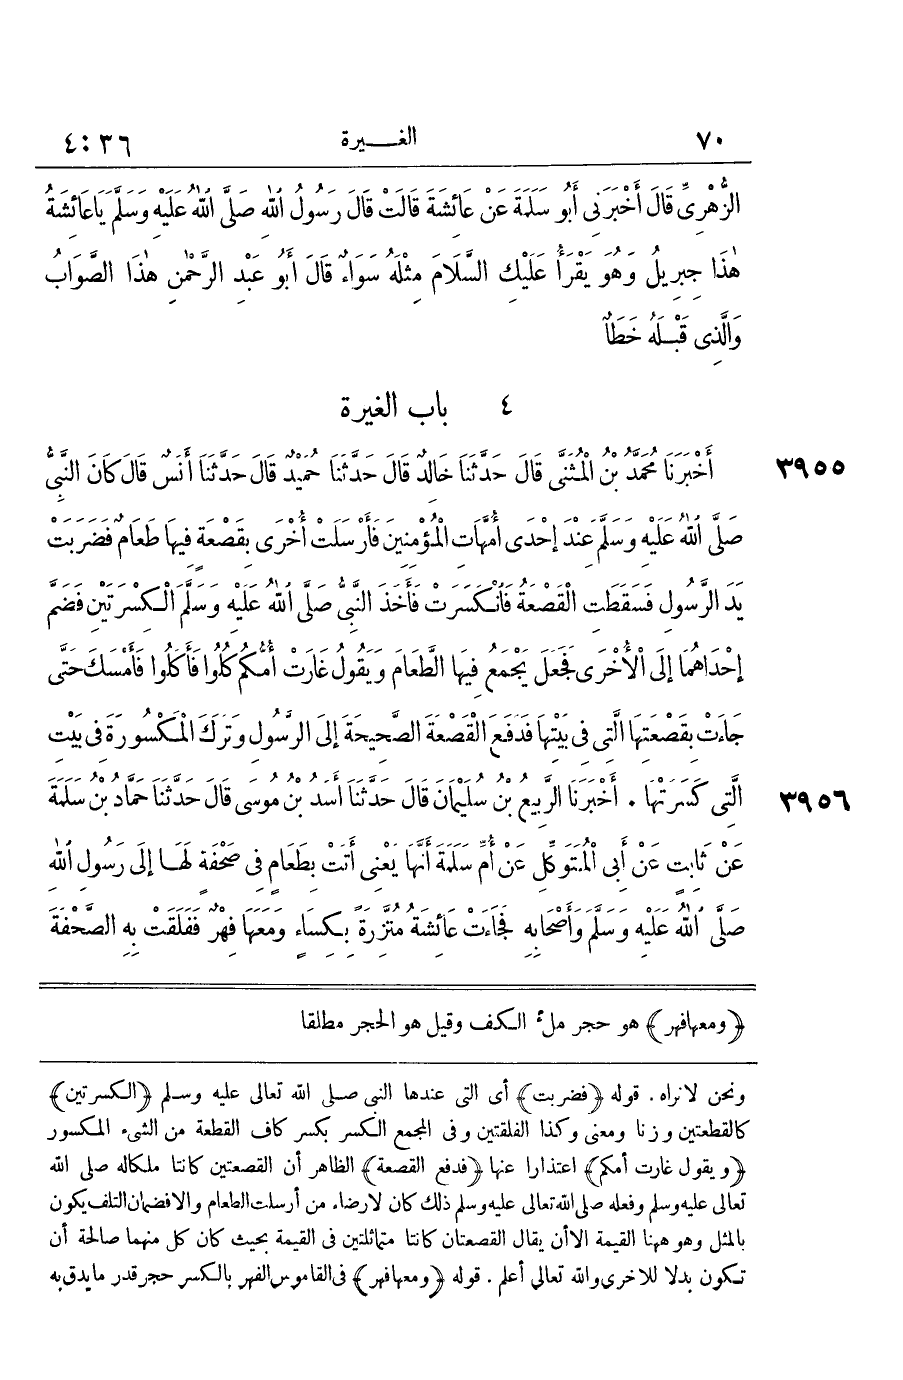 ٧٠ الغيرة ٣٦:٤
الزُّهْرِيِّ قَالَ أَخْبَرَنِي أَبُو سَلَمَةَ عَنْ عَائِشَةَ قَالَتْ قَالَ رَسُولُ اللهِ صَلَّى اللهُ عَلَيْهِ وَسَلَّمَ يَاعَائِشَةُ
هٰذَا جِبْرِيلُ وَهُوَ يَقْرَأُ عَلَيْكِ السَّلَامَ مِثْلَهُ سَوَاءٌ قَالَ أَبُو عَبْدِ الرَّحْمٰنِ هٰذَا الصَّوَابُ
وَالَّذِى قَبْلَهُ خَطَأٌ
٤ باب الغيرة
٣٩٥٥ أَخْبَرَنَا مُحَمَّدُ بْنُ الْمُثَنَّى قَالَ حَدَّثَنَا خَالِدٌ قَالَ حَدَّثَنَا حُمَيْدٌ قَالَ حَدَّثَنَا أَنَسٌ قَالَ كَانَ النَّبِيُّ
صَلَّى اللهُ عَلَيْهِ وَسَلَّمَ عِنْدَ إِحْدَى أُمَّهَاتِ الْمُؤْمِنِينَ فَأَرْسَلَتْ أُخْرَى بِقَصْعَةٍ فِيهَا طَعَامٌ فَضَرَبَتْ
يَدَ الرَّسُولِ فَسَقَطَتِ الْقَصْعَةُ فَانْكَسَرَتْ فَأَخَذَ النَّبِيُّ صَلَّى اللهُ عَلَيْهِ وَسَلَّمَ الْكِسْرَتَيْنِ فَضَمَّ
إِحْدَاهُمَا إِلَى الْأُخْرَى فَجَعَلَ يَجْمَعُ فِيهَا الطَّعَامَ وَيَقُولُ غَارَتْ أُمُّكُمْ كُلُوا فَأَكَلُوا فَأَمْسَكَ حَتَّى
جَاءَتْ بِقَصْعَتِهَا الَّتِي فِي بَيْتِهَا فَدَفَعَ الْقَصْعَةَ الصَّحِيحَةَ إِلَى الرَّسُولِ وَتَرَكَ الْمَكْسُورَةَ فِى بَيْتِ
٣٩٥٦ الَّتِى كَسَرَتْهَا . أَخْبَرَنَا الرَّبِيعُ بْنُ سُلَيْمَانَ قَالَ حَدَّثَنَا أَسَدُ بْنُ مُوسَى قَالَ حَدَّثَنَا حَمَّادُ بْنُ سَلَمَةَ
عَنْ ثَابِتٍ عَنْ أَبِى الْمُتَوَكِّلِ عَنْ أُمِّ سَلَمَةَ أَنَّهَا يَعْنِى أَتَتْ بِطَعَامٍ فِى صَحْفَةٍ لَهَا إِلَى رَسُولِ اللهِ
صَلَّى اللهُ عَلَيْهِ وَسَلَّمَ وَأَصْحَابِهِ فَجَاءَتْ عَائِشَةُ مُتَّزِرَةً بِكِسَاءٍ وَمَعَهَا فِهْرٌ فَفَلَقَتْ بِهِ الصَّحْفَةَ
﴿ومعهافهر﴾ هو حجر ملءُ الكف وقيل هو الحجر مطلقا
ونحن لانراه . قوله ﴿فضربت﴾ أى التى عندها النبى صلى الله تعالى عليه وسلم ﴿الكسرتين﴾
كالقطعتين وزنا ومعنى وكذا الفلقتين وفى المجمع الكسر بكسر كاف القطعة من الشىء المكسور
﴿ويقول غارت أمكم﴾ اعتذارا عنها ﴿فدفع القصعة﴾ الظاهر أن القصعتين كانتا ملكاله صلى الله
تعالى عليه وسلم وفعله صلى الله تعالى عليه وسلم ذلك كان لارضاء من أرسلت الطعام والافضمان التلف يكون
بالمثل وهو ههنا القيمة الاأن يقال القصعتان كانتا متماثلتين فى القيمة بحيث كان كل منهما صالحة أن
تكون بدلا للاخرى والله تعالى أعلم . قوله ﴿ومعهافهر﴾ فى القاموس الفهر بالكسر حجر قدر مايدق به